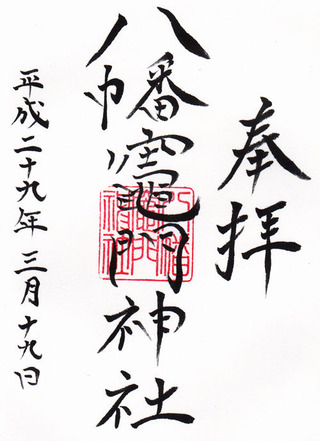 奉拝
八幡竈門神社
平成二十九年三月十九日